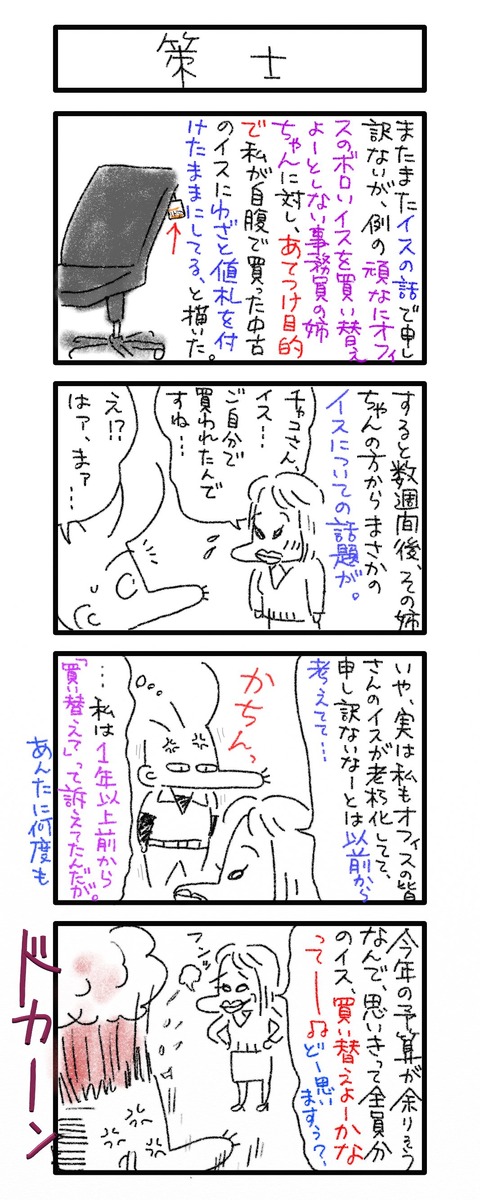 策士
またまたイスの話で申し
訳ないが、例の頑なにオフィ
スのボロいイスを買い替え
よーとしない事務員の姉
ちゃんに対し、あてつけ目的
で私が自腹で買った中古
のイスにわざと値札を付
けたままにしてる、と描いた。
すると数週間後、その姉
ちゃんの方からまさかの
イスについての話題が。
チャコさん、
イス…
ご自分で
買われたんで
すね…
え!?
はァ、まァ
…
いや、実は私もオフィスの皆
さんのイスが老朽化してて、
申し訳ないなーとは以前から
考えてて…
かちんっ
…私は1年以上前から
「買い替えて」って訴えてたんだが。
あんたに何度も
今年の予算が余りそう
なんで、思いきって全員分
のイス、買い替えよーかな
ってーーぬどー思い
ますぅ?、
フンッ
ドカーン